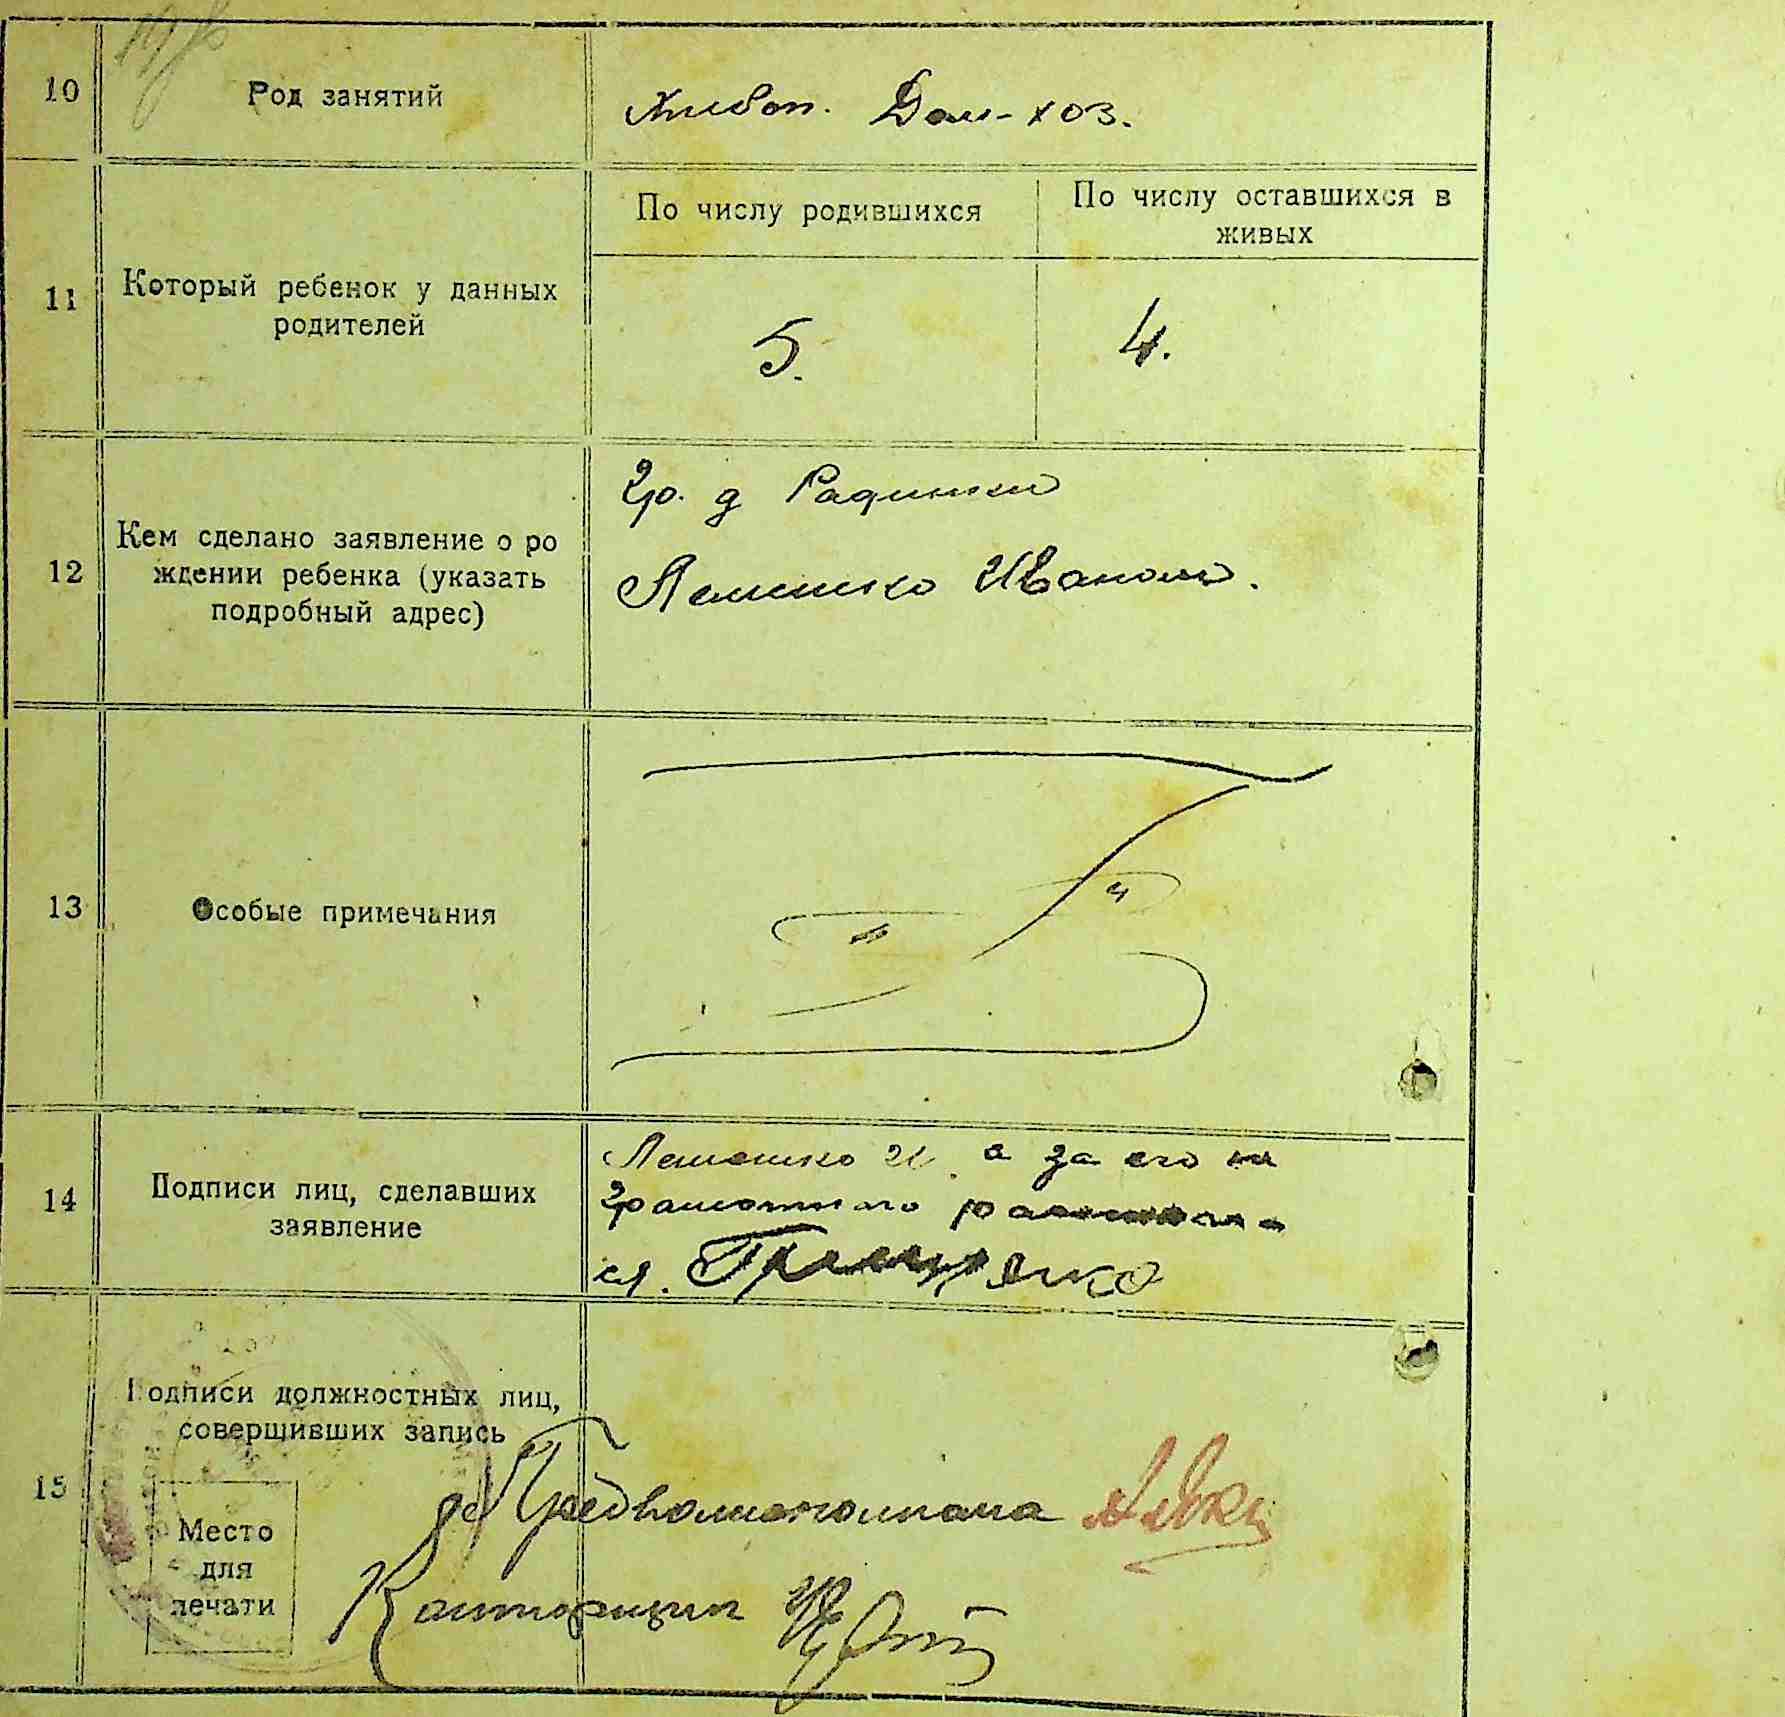 10
Род занятий
Хлебоп. Дом-хоз.
11
Который ребенок у данных
родителей
По числу родившихся
По числу оставшихся в
живых
5.
4.
12
Кем сделано заявление о ро
ждении ребенка (указать
подробный адрес)
гр. д
Лемешко Иваном.
13
Особые примечания
14
Подписи лиц, сделавших
заявление
Лемешко И. а за его не
грамотного
ся.
15
Подписи должностных лиц,
совершивших запись
Место
для
печати
Конторщик